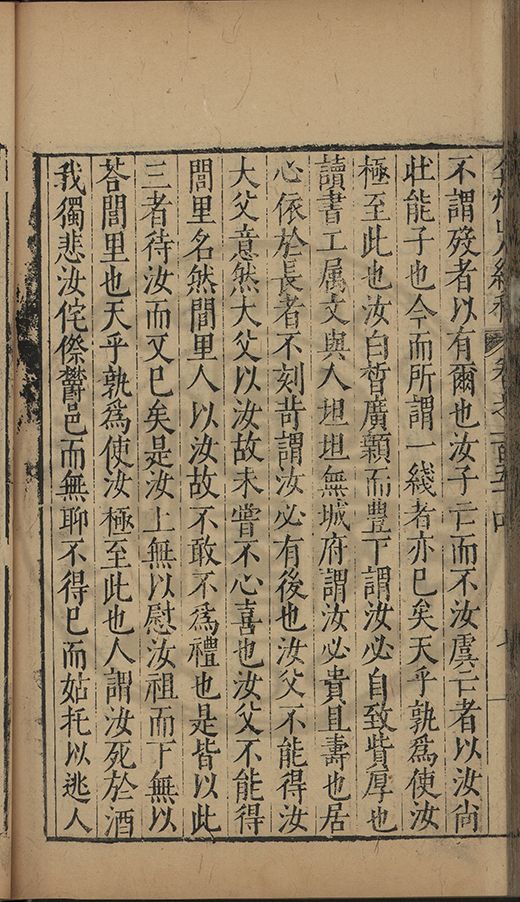 弇州山人續稿 卷之一百五十四 七
不謂殁者以有爾也汝子亡而不汝虞亡者以汝尚
壯能子也今而所謂一綫者亦已矣天乎孰爲使汝
極至此也汝白皙廣顙而豐下謂汝必自致貲厚也
讀書工属文與人坦坦無城府謂汝必貴且壽也居
心依於長者不刻苛謂汝必有後也汝父不能得汝
大父意然大父以汝故未嘗不心喜也汝父不能得
閭里名然閭里人以汝故不敢不爲禮也是皆以此
三者待汝而又已矣是汝上無以慰汝祖而下無以
荅閭里也天乎孰爲使汝極至此也人謂汝死於酒
我獨悲汝侘傺欝邑而無聊不得已而姑托以逃人